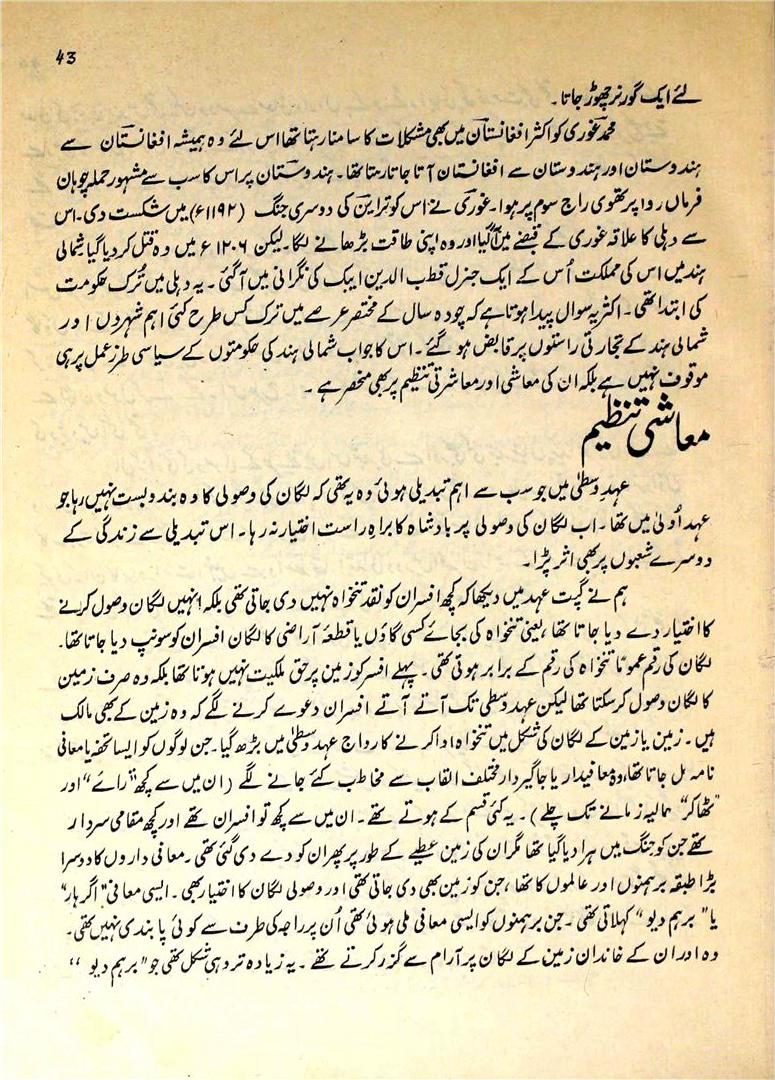 43
لئے ایک گورنر چھوڑ جاتا۔
محمد غوری کو اکثر افغانستان میں بھی مشکلات کا سامنا رہتا تھا اس لئے وہ ہمیشہ افغانستان سے
ہندوستان اور ہندوستان سے افغانستان آتا جاتا رہتا تھا۔ ہندوستان پر اس کا سب سے مشہور حملہ چوہان
فرماں روا پرتھوی راج سوم پر ہوا۔ غوری نے اس کو تراین کی دوسری جنگ (۱۱۹۲ء) میں شکست دی۔ اس
سے دہلی کا علاقہ غوری کے قبضے میں آگیا اور وہ اپنی طاقت بڑھانے لگا۔ لیکن ۱۲۰۶ء میں وہ قتل کر دیا گیا شمالی
ہند میں اس کی مملکت اُس کے ایک جنرل قطب الدین ایبک کی نگرانی میں آگئی۔ یہ دہلی میں تُرک حکومت
کی ابتدا تھی۔ اکثر یہ سوال پیدا ہوتا ہے کہ چودہ سال کے مختصر عرصے میں ترک کس طرح کئی اہم شہروں اور
شمالی ہند کے تجارتی راستوں پر قابض ہو گئے۔ اس کا جواب شمالی ہند کی حکومتوں کے سیاسی طرز عمل پر ہی
موقوف نہیں ہے بلکہ ان کی معاشی اور معاشرتی تنظیم پر بھی منحصر ہے۔
معاشی تنظیم
عہد وسطیٰ میں جو سب سے اہم تبدیلی ہوئی وہ یہ تھی کہ لگان کی وصولی کا وہ بندوبست نہیں رہا جو
عہد اُولیٰ میں تھا۔ اب لگان کی وصولی پر بادشاہ کا براہِ راست اختیار نہ رہا۔ اس تبدیلی سے زندگی کے
دوسرے شعبوں پر بھی اثر پڑا۔
ہم نے گپت عہد میں دیکھا کہ کچھ افسران کو نقد تنخواہ نہیں دی جاتی تھی بلکہ انہیں لگان وصول کرنے
کا اختیار دے دیا جاتا تھا، یعنی تنخواہ کی بجائے کسی گاؤں یا قطعۂ آراضی کا لگان افسران کو سونپ دیا جاتا تھا۔
لگان کی رقم عموماً تنخواہ کی رقم کے برابر ہوتی تھی۔ پہلے افسر کو زمین پر حق ملکیت نہیں ہوتا تھا بلکہ وہ صرف زمین
کا لگان وصول کر سکتا تھا لیکن عہد وسطی تک آتے آتے افسران دعوے کرنے لگے کہ وہ زمین کے بھی مالک
ہیں۔ زمین یا زمین کے لگان کی شکل میں تنخواہ ادا کرنے کا رواج عہد وسطیٰ میں بڑھ گیا۔ جن لوگوں کو ایسا تحفہ یا معافی
نامہ مل جاتا تھا، وہ معافیدار یا جاگیردار مختلف القاب سے مخاطب کئے جانے لگے (ان میں سے کچھ "رائے" اور
"ٹھاکر" حالیہ زمانے تک چلے)۔ یہ کئی قسم کے ہوتے تھے۔ ان میں سے کچھ تو افسران تھے اور کچھ مقامی سردار
تھے جن کو جنگ میں ہرا دیا گیا تھا مگر ان کی زمین عطیے کے طور پر پھر ان کو دے دی گئی تھی۔ معافی داروں کا دوسرا
بڑا طبقہ برہمنوں اور عالموں کا تھا، جن کو زمین بھی دی جاتی تھی اور وصولی لگان کا اختیار بھی۔ ایسی معافی "اگرہار"
یا "برہم دیو" کہلاتی تھی۔ جن برہمنوں کو ایسی معافی ملی ہوئی تھی اُن پر راجہ کی طرف سے کوئی پابندی نہیں تھی۔
وہ اور ان کے خاندان زمین کے لگان پر آرام سے گزر کرتے تھے۔ یہ زیادہ تر وہی شکل تھی جو "برہم دیو"